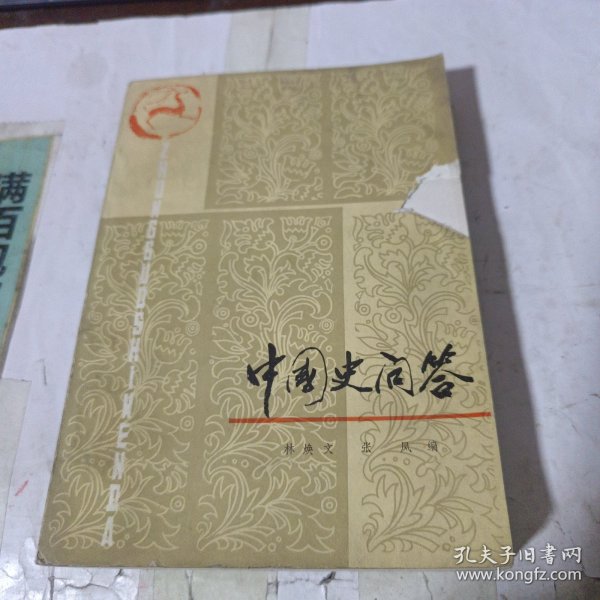 ZHONGGUOSHIWENDA
中国史问答
林焕文 张凤编
满百包
孔夫子旧书网
www.kongfz.com